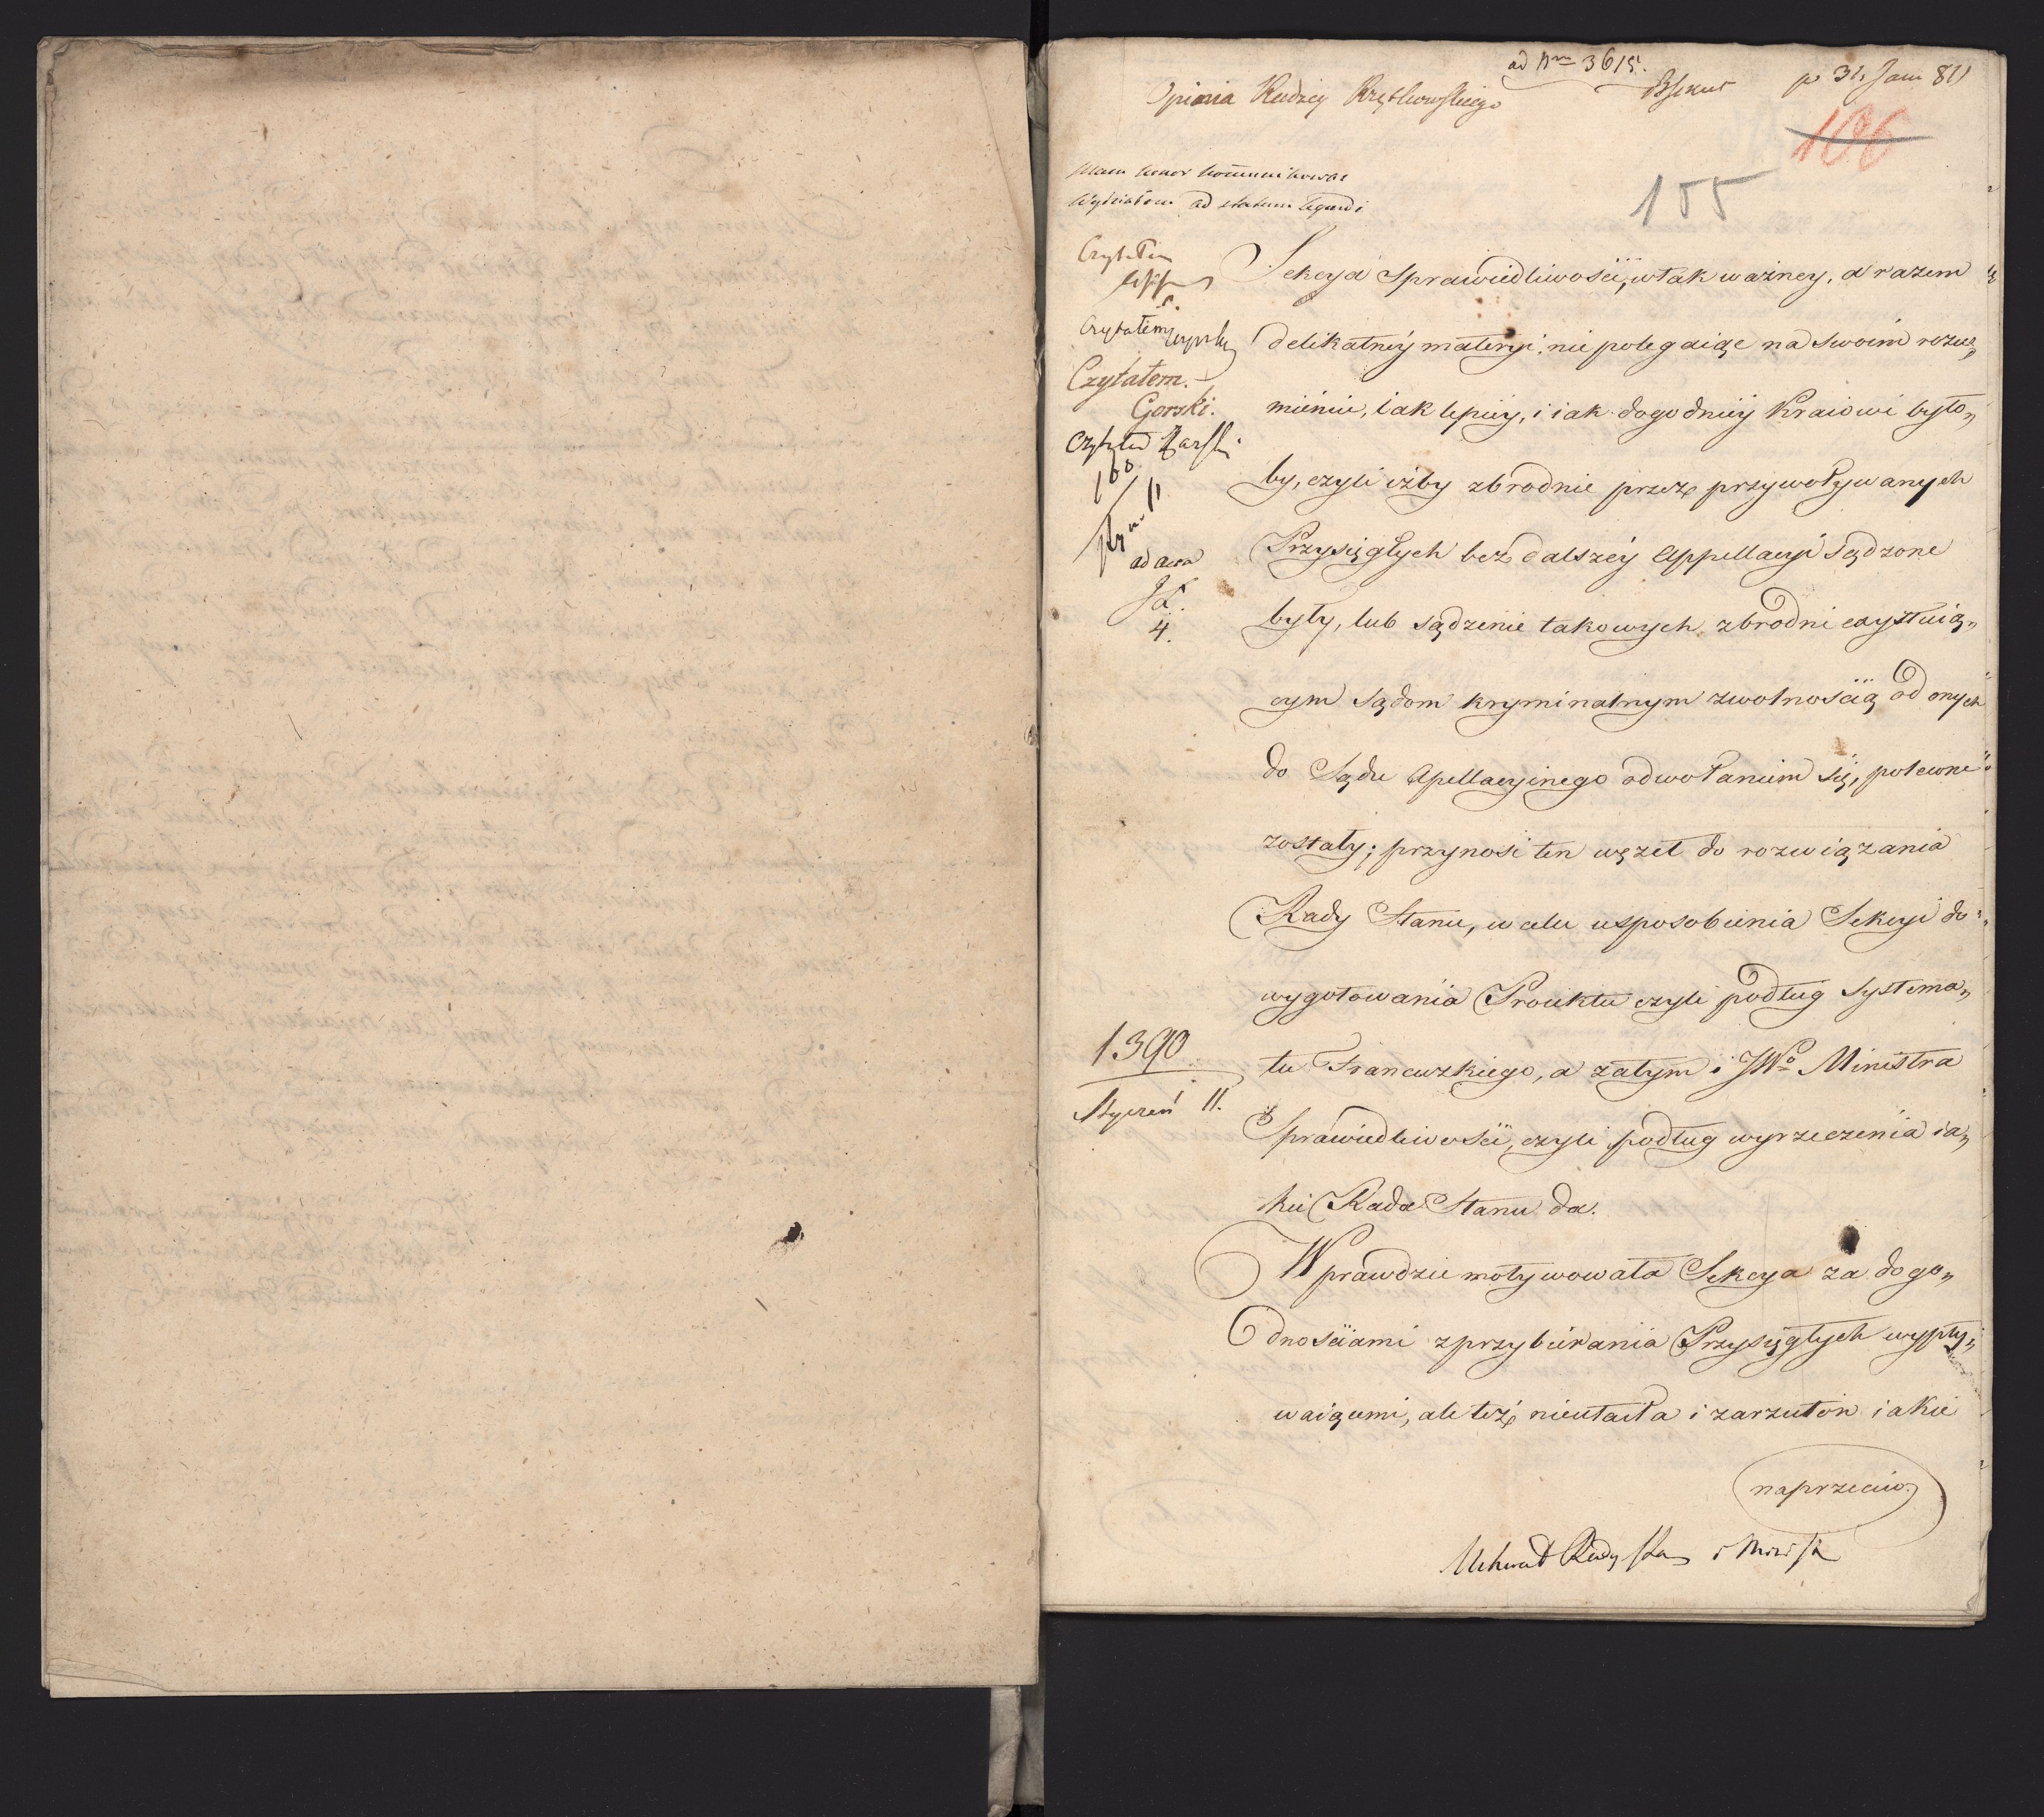 ad Nrm 3615.
Opinia Radzcy
p 31 Jan 811
106
155
Mam honor kommunikować
Wydziałom ad statum legendi
Czytałem
Czytałem
Czytałem.
Gorski.
ad acta
4.
1390
Styczeń 11.
Sekcya Sprawiedliwości, w tak ważney, a razem
delikatnéy materyi, nie polegaiąc na swoim rozu„
mieniu, iak lepiéy, i iak dogodniéy Kraiowi było„
by, czyli iżby zbrodnie przez przywoływanych
Przysięgłych bez dalszéy Appellacyi sądzone
były, lub sądzenie takowych zbrodni exystuią„
cym Sądom kryminalnym zwolnością od onych
do Sądu Apellacyinego odwołaniem się, polecone
zostały; przynosi ten węzeł do rozwiązania
Rady Stanu, w celu usposobienia Sekcyi do
wygotowania Proiektu czyli podług systema„
tu Francuzkiego, a zatym i JWo Ministra
Sprawiedliwości, czyli podług wyrzeczenia ia„
kie Rada Stanu da.
Wprawdzie motywowała Sekcya za dogo„
dnościami z przybierania Przysięgłych wypły„
waiącemi, ale też nieutaiła i zarzutów iakie
naprzeciw